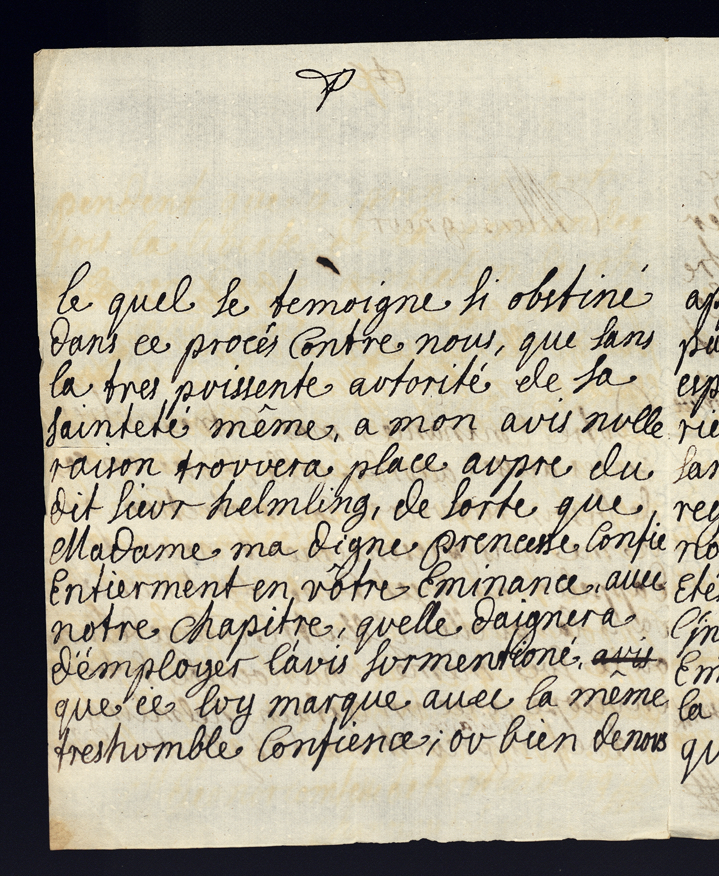 le quel se temoigne si obstiné
dans ce procés Contre nous, que sans
la tres puissente autorité de sa
sainteté même, a mon avis nulle
raison trouvera place aupre du
dit sieur helmling, de sorte que
Madame ma digne prencesse Confie
Entierment en vôtre Eminance, auec
notre Chapitre, quelle daignera
d'émployer lávis surmentioné, avis
que ie luy marque auec la même
treshumble Confience; ou bien de nous